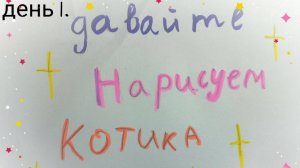 день 1.
давайте
Нарисуем
КОТИКА